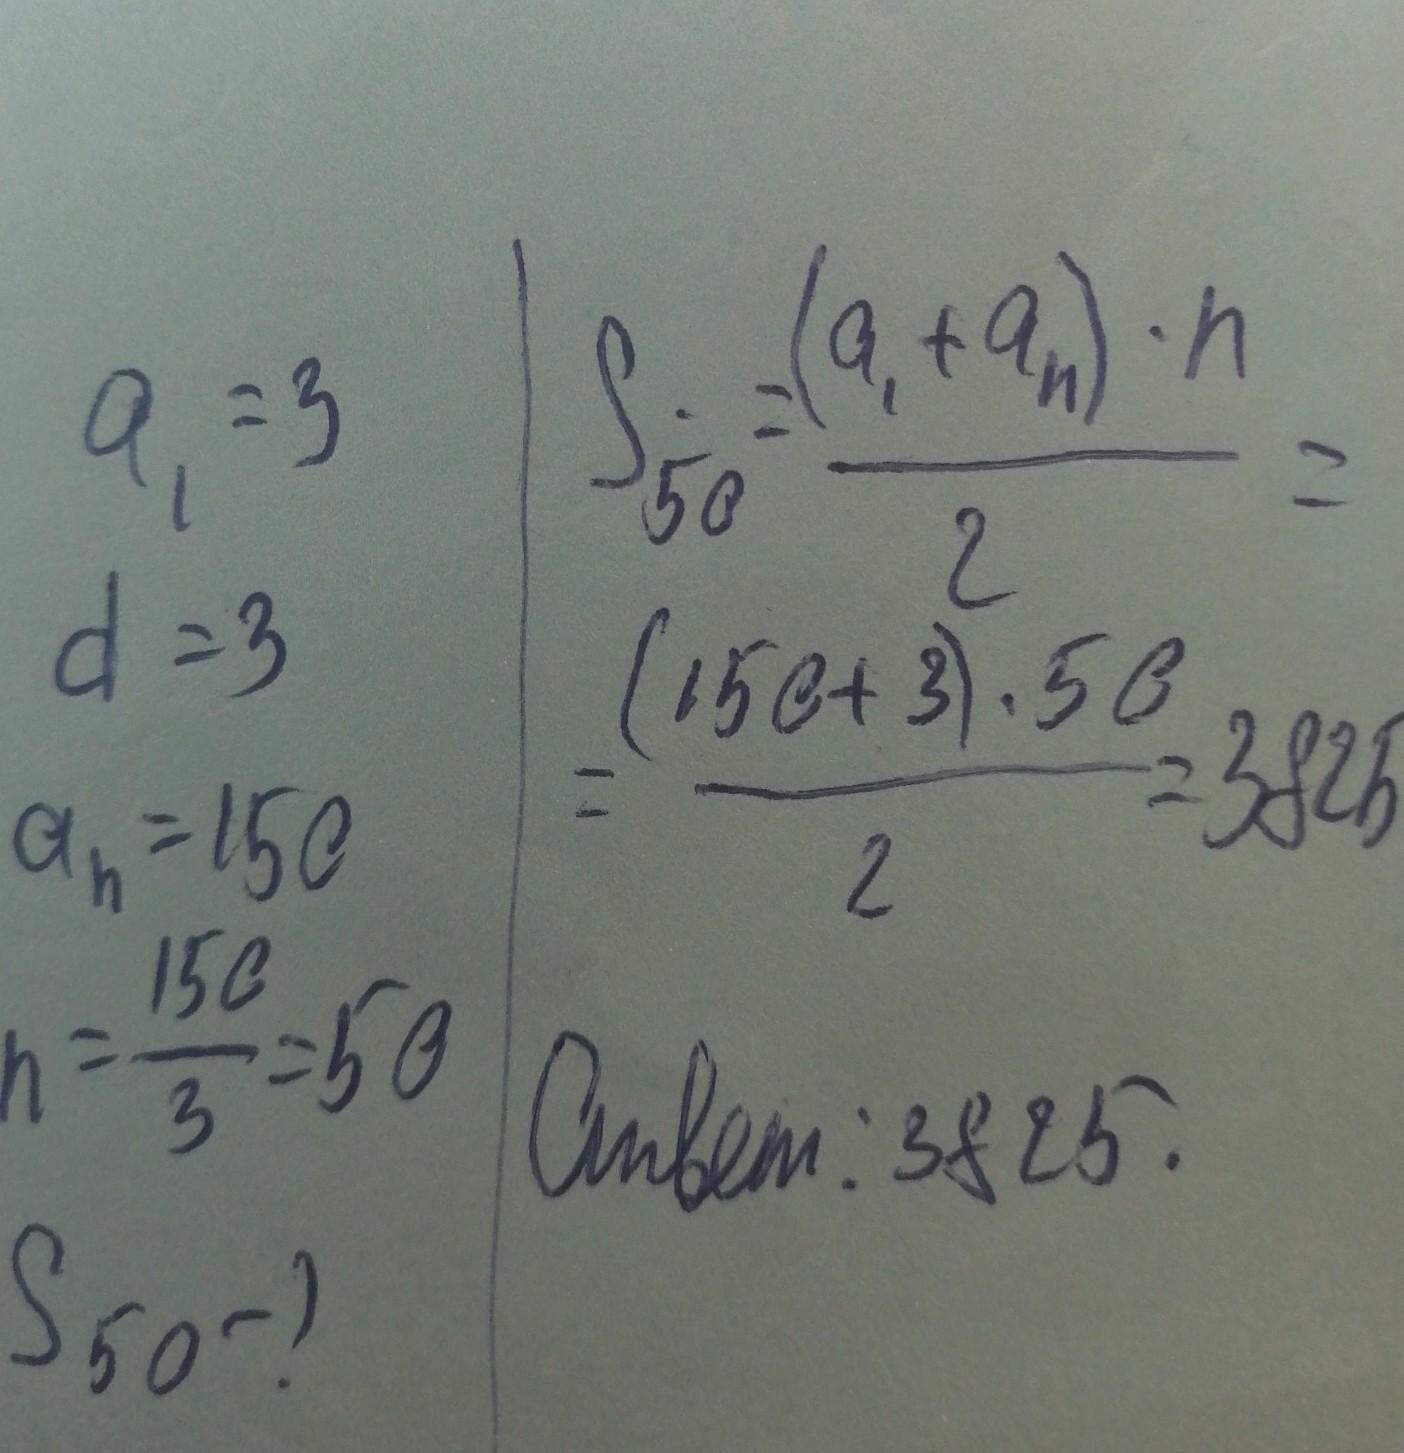 a₁ = 3
d = 3
aₙ = 150
n = 150/3 = 50
S₅₀ - ?
S₅₀ = (a₁ + aₙ) · n / 2 =
= (150 + 3) · 50 / 2 = 3825
Ответ: 3825.